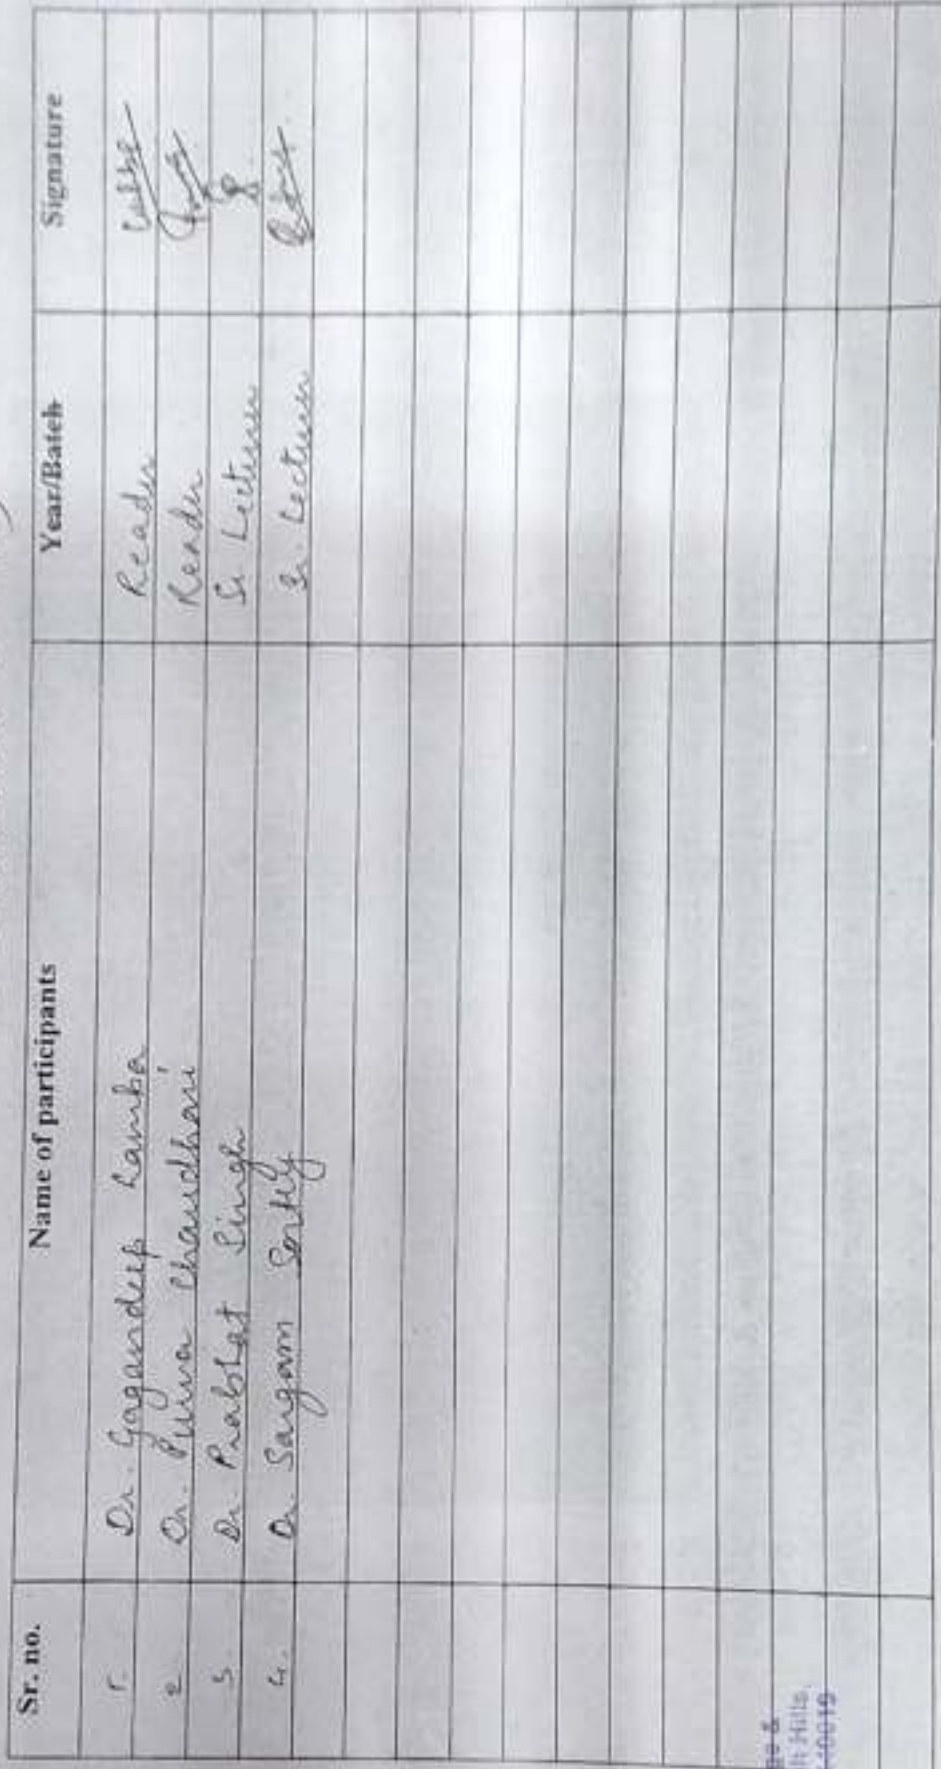 Sr. no. Name of participants Year/Batch Signature
1. Dr. Gagandeep Lamba Reader
2 Dr. Purva Chaudhari Reader
3. Dr. Prabhat Singh Sr. Lecturer
4. Dr. Sargam Sr. Lecturer
&
lt Hills,